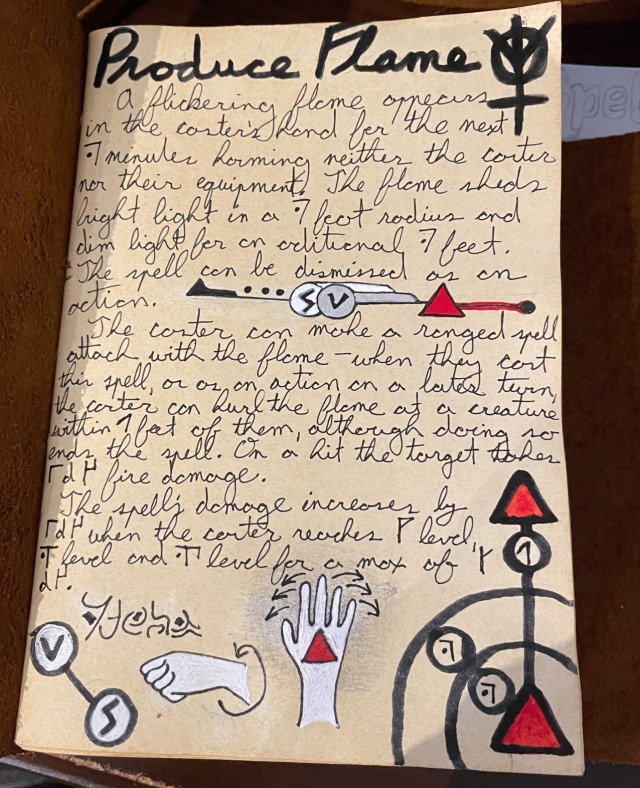 Produce Flame
A flickering flame appears
in the caster's hand for the next
minutes harming neither the caster
nor their equipment. The flame sheds
bright light in a foot radius and
dim light for an aditional feet.
The spell can be dismissed as an
action.
S V
The caster can make a ranged spell
attack with the flame - when they cast
this spell, or as an action on a later turn,
the caster can hurl the flame at a creature
within feet of them, although doing so
ends the spell. On a hit the target takes
d fire damage.
The spell's damage increases by
d when the caster reaches level,
level and level for a max of
d
V
S
Spe